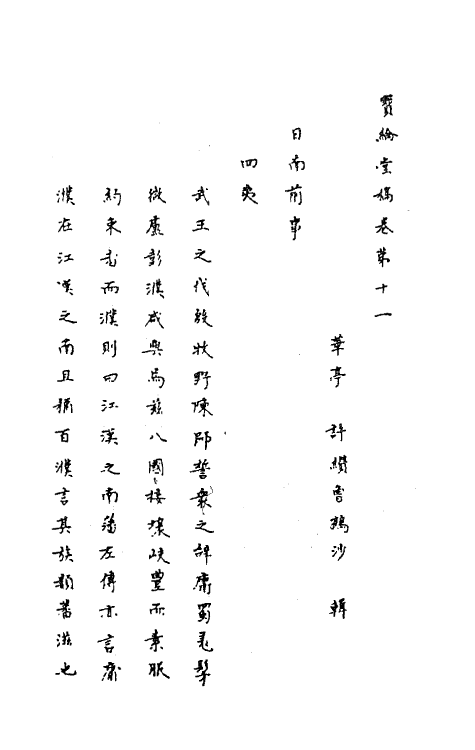 寶綸堂稿卷第十一
華亭 許纘曾鶴沙 輯
日南前事
四夷
武王之伐殷牧野陳師誓衆之辭庸蜀羌髳
微盧彭濮咸與焉茲八國接壤岐豐而素服
約束者而濮則曰江漢之南濮左傳亦言庸
濮在江漢之南且稱百濮言其族類蕃滋也